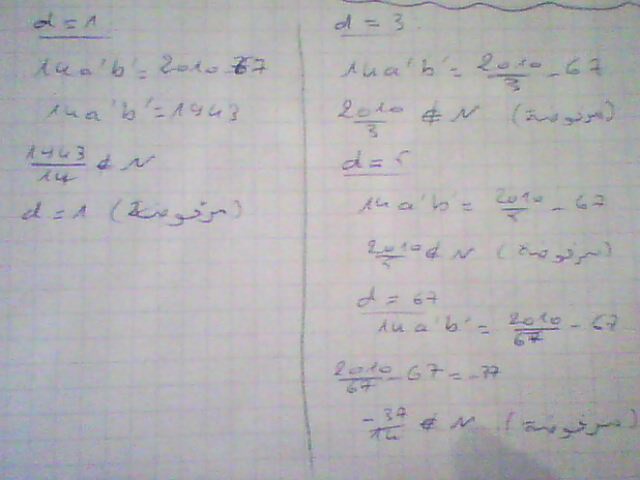 d = 1
14a'b' = 2010 - 67
14a'b' = 1943
1943/14 ∉ N
d = 1 (مرفوضة)
d = 3
14a'b' = 2010/3 - 67
2010/3 ∉ N (مرفوضة)
d = 5
14a'b' = 2010/5 - 67
2010/5 ∉ N (مرفوضة)
d = 67
14a'b' = 2010/67 - 67
2010/67 - 67 = -37
-37/14 ∉ N (مرفوضة)